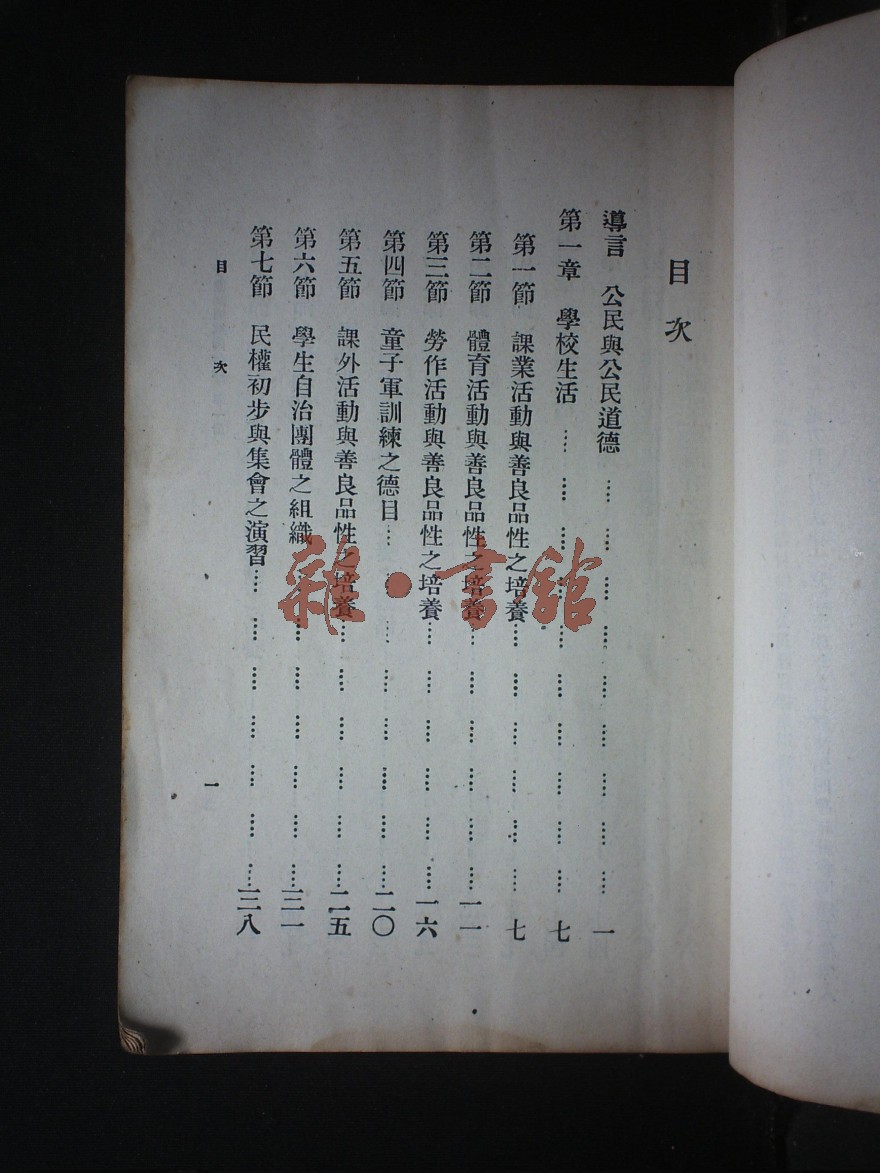 目次
導言 公民與公民道德 一
第一章 學校生活 七
第一節 課業活動與善良品性之培養 七
第二節 體育活動與善良品性之培養 一一
第三節 勞作活動與善良品性之培養 一六
第四節 童子軍訓練之德目 二〇
第五節 課外活動與善良品性之培養 二五
第六節 學生自治團體之組織 三一
第七節 民權初步與集會之演習 三八
目次 一
雜·書館